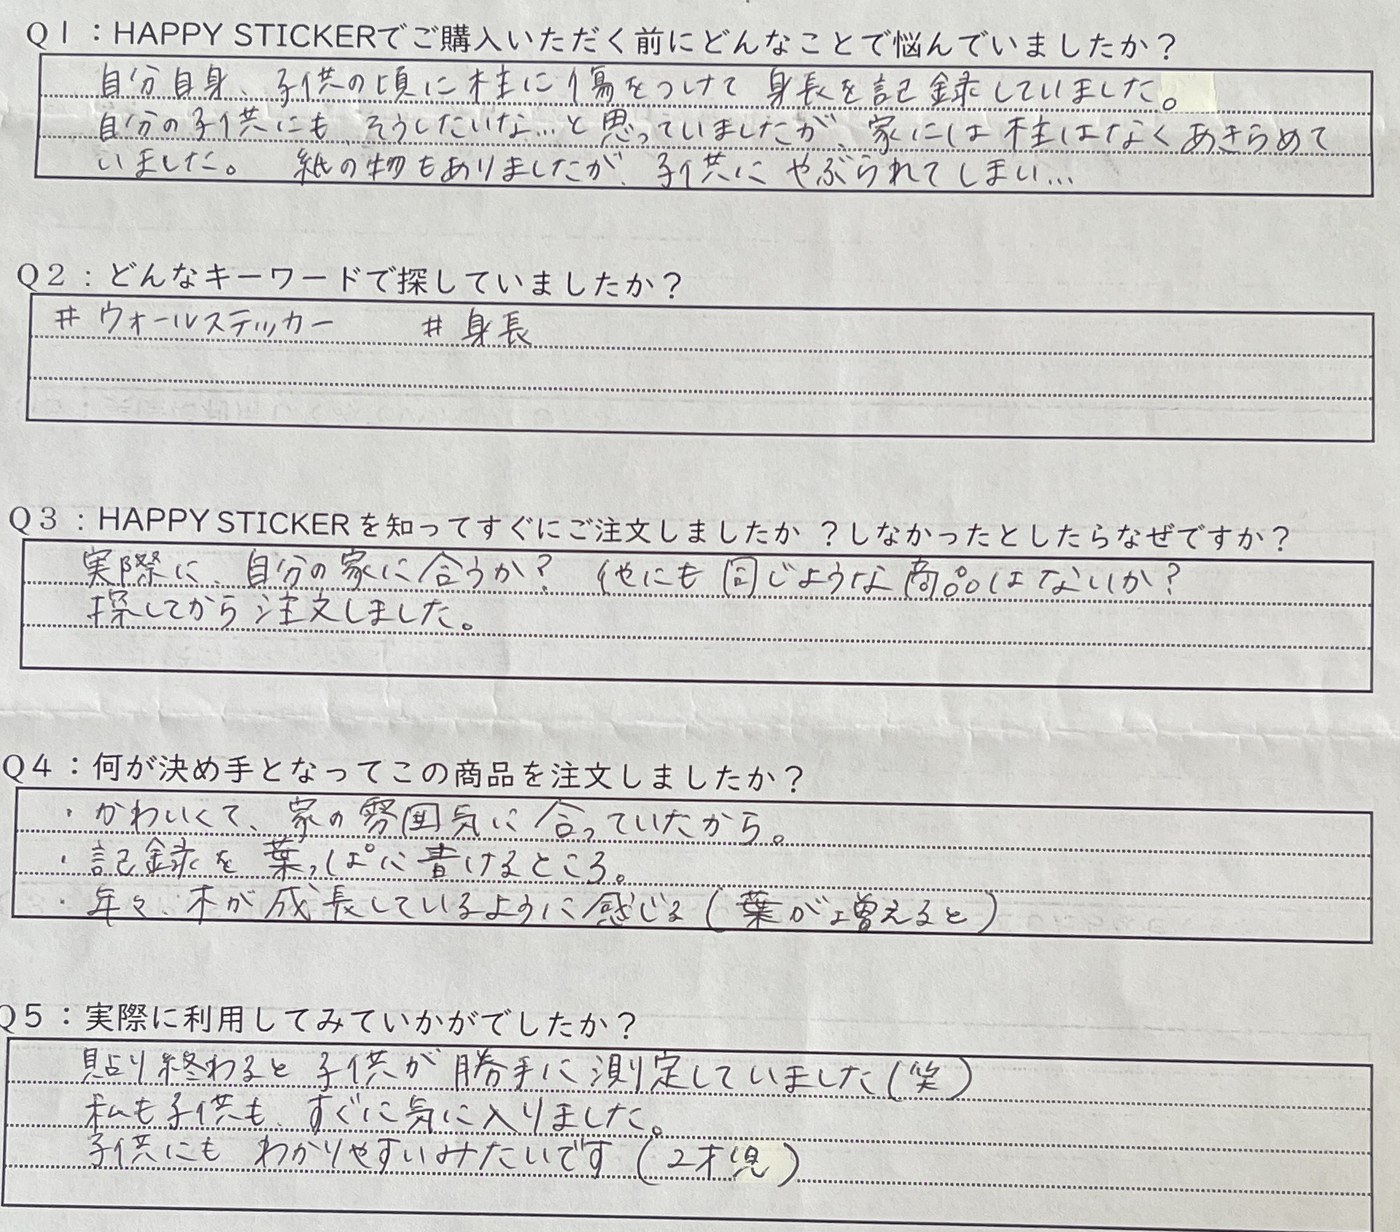 Q1：HAPPY STICKERでご購入いただく前にどんなことで悩んでいましたか？
自分自身、子供の頃に柱に傷をつけて 身長を記録していました。
自分の子供にも、そうしたいな…と思っていましたが、家には柱はなくあきらめて
いました。 紙の物もありましたが、子供に やぶられてしまい…
Q2：どんなキーワードで探していましたか？
# ウォールステッカー # 身長
Q3：HAPPY STICKERを知ってすぐにご注文しましたか ？しなかったとしたらなぜですか？
実際に、自分の家に合うか？ 他にも同じような商品はないか？
探してから注文しました。
Q4：何が決め手となってこの商品を注文しましたか？
・かわいくて、家の雰囲気に合っていたから。
・記録を葉っぱに書けるところ。
・年々、木が成長しているように感じる（葉が増えると）
Q5：実際に利用してみていかがでしたか？
貼り終わると子供が勝手に測定していました（笑）
私も子供も、すぐに気に入りました。
子供にも わかりやすいみたいです（2才児）